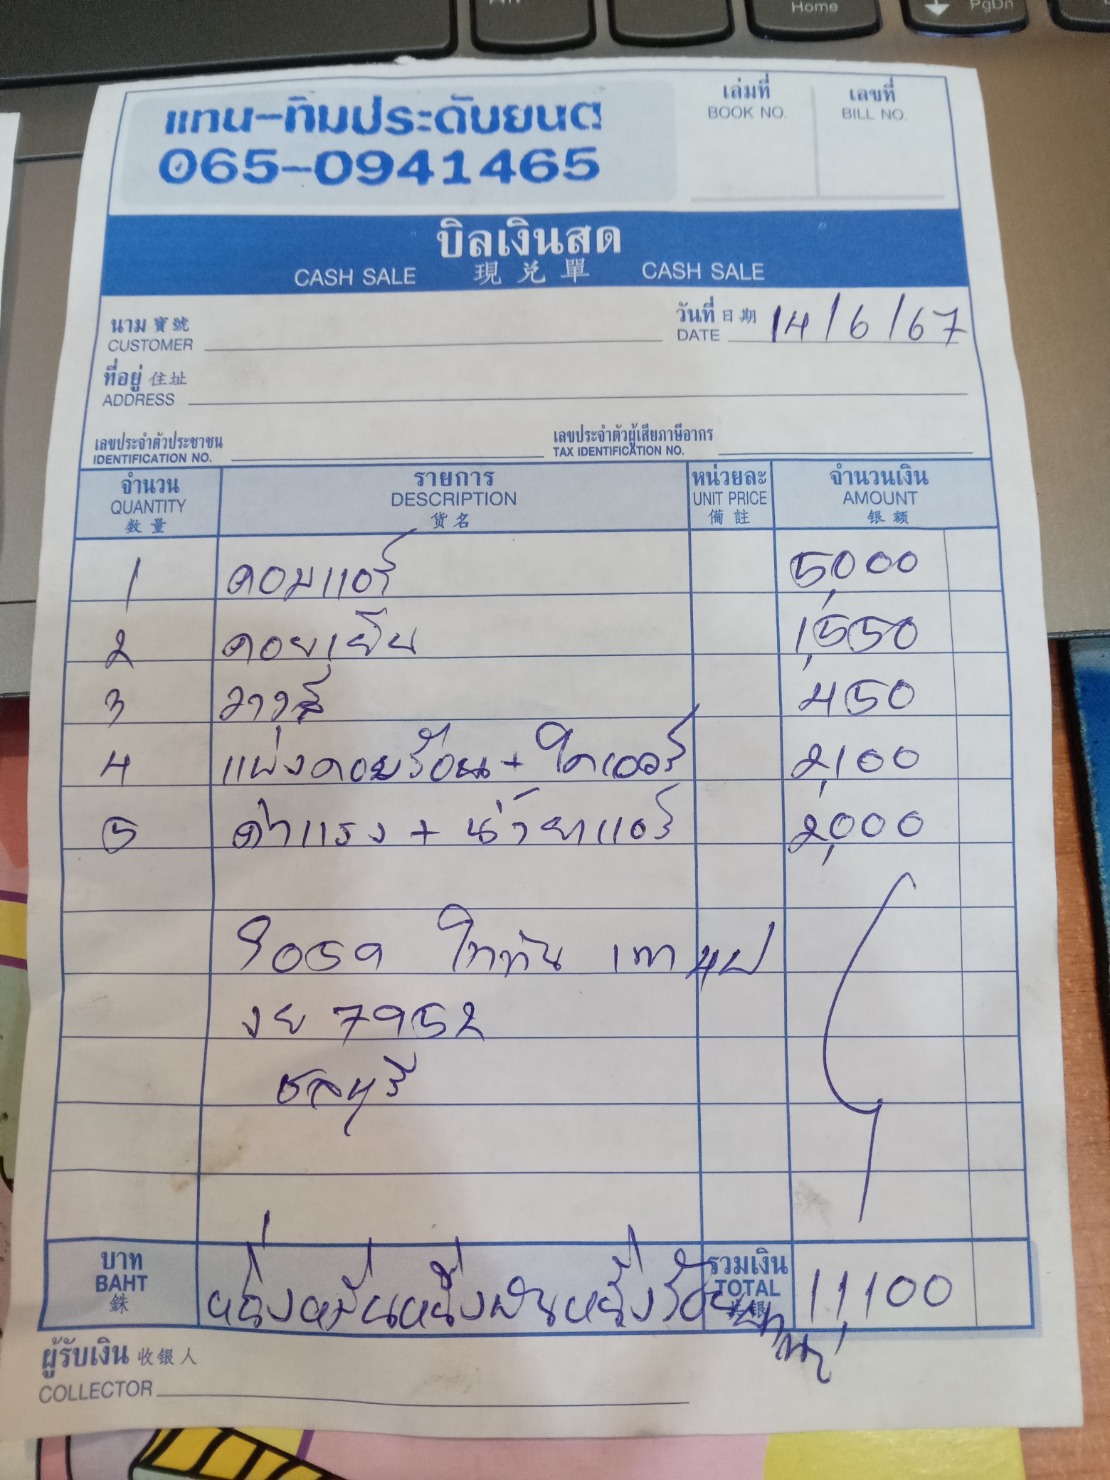 แทน-ทิมประดับยนต์
065-0941465
เล่มที่
BOOK NO.
เลขที่
BILL NO.
บิลเงินสด
CASH SALE 現兑單 CASH SALE
นาม 寶號
CUSTOMER
วันที่ 日期
DATE 14/6/67
ที่อยู่ 住址
ADDRESS
เลขประจำตัวประชาชน
IDENTIFICATION NO.
เลขประจำตัวผู้เสียภาษีอากร
TAX IDENTIFICATION NO.
จำนวน รายการ หน่วยละ จำนวนเงิน
QUANTITY DESCRIPTION UNIT PRICE AMOUNT
数量 货名 備註 银额
1 คอมแอร์ 5,000
2 คอยเย็น 1,550
3 วาวส์ 450
4 แผงคอยร้อน + ไดเออร์ 2,100
5 ค่าแรง + น้ำยาแอร์ 2,000
วีออส ไททัน เทา
งย 7952
ชลบุรี
บาท
BAHT
銖
หนึ่งหมื่นหนึ่งพันหนึ่งร้อยบาทถ้วน
รวมเงิน
TOTAL
11,100
ผู้รับเงิน 收银人
COLLECTOR